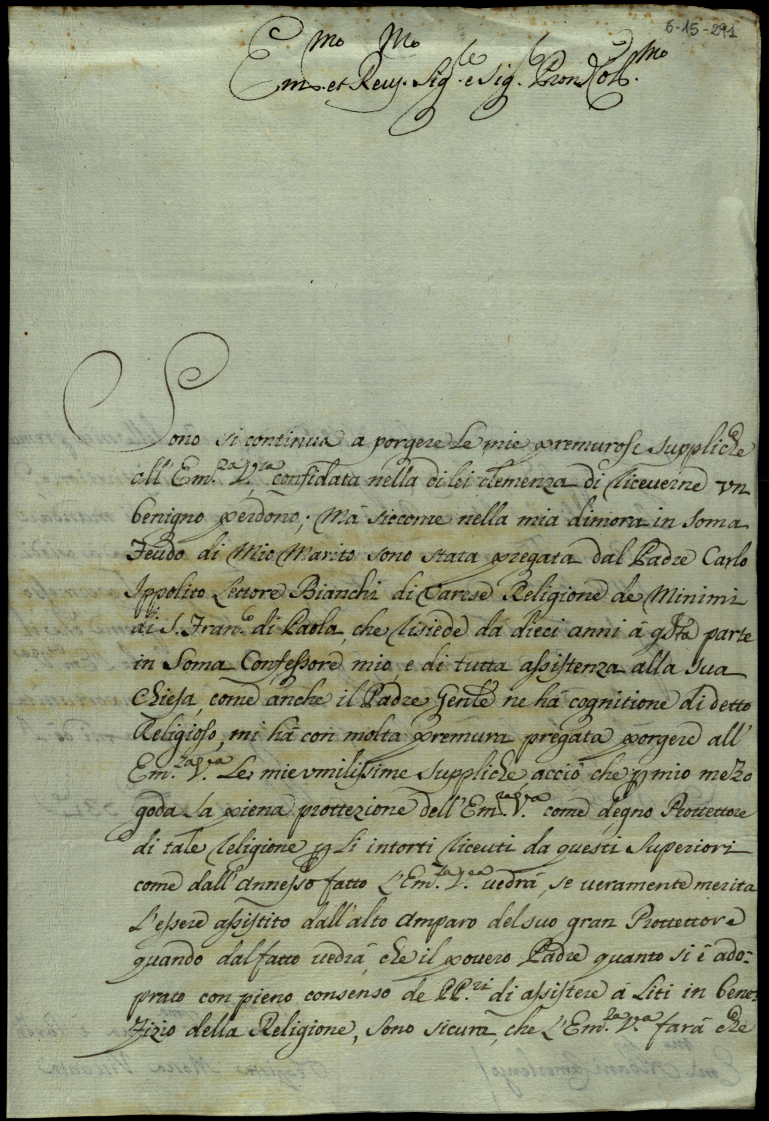 6-15-291
Em.mo et Reu.mo Sig.re e Sig. Pron Col.mo
Sono si continua a porgere le mie premurose suppliche
all'Em.za V.ra confidata nella di lei clemenza di riceuerne vn
benigno perdono; Mà siccome nella mia dimora in Soma
Feudo di Mio Marito sono stata pregata dal Padre Carlo
Ippolito Lettore Bianchi di Varese Religione de Minimi
di S. Fran.co di Paola, che risiede dà dieci anni à q.sta parte
in Soma Confessore mio, e di tutta assistenza alla sua
Chiesa, come anche il Padre Gen.le ne hà cognitione di detto
Religioso, mi hà con molta premura pregata porgere all'
Em.za V.ra Le mie vmilissime suppliche acciò che p mio mezo
goda la piena prottezione dell'Em.za V.ra come degno Prottettore
di tale Religione p Li intorti riceuti da questi Superiori
come dall'Annesso fatto L'Em.za V.ra vedrà, se ueramente merita
L'essere assistito dall'alto Amparo del suo gran Prottettore
quando dal fatto uedrà, che il pouero Padre quanto si è ado:
prato con pieno consenso de PP.ri di assistere à Liti in bene:
fizio della Religione, sono sicura, che L'Em.za V.ra farà che